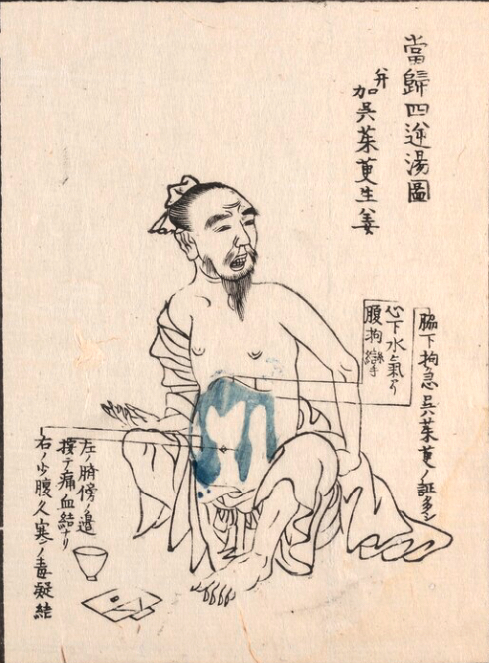 當歸四逆湯圖
并
加呉茱萸生姜
脇下拘急呉茱萸ノ証多シ
心下水ト氣アリ
腹拘攣
左ノ臍傍ノ邉
按テ痛血結ナリ
右ノ少腹久寒ノ毒凝結